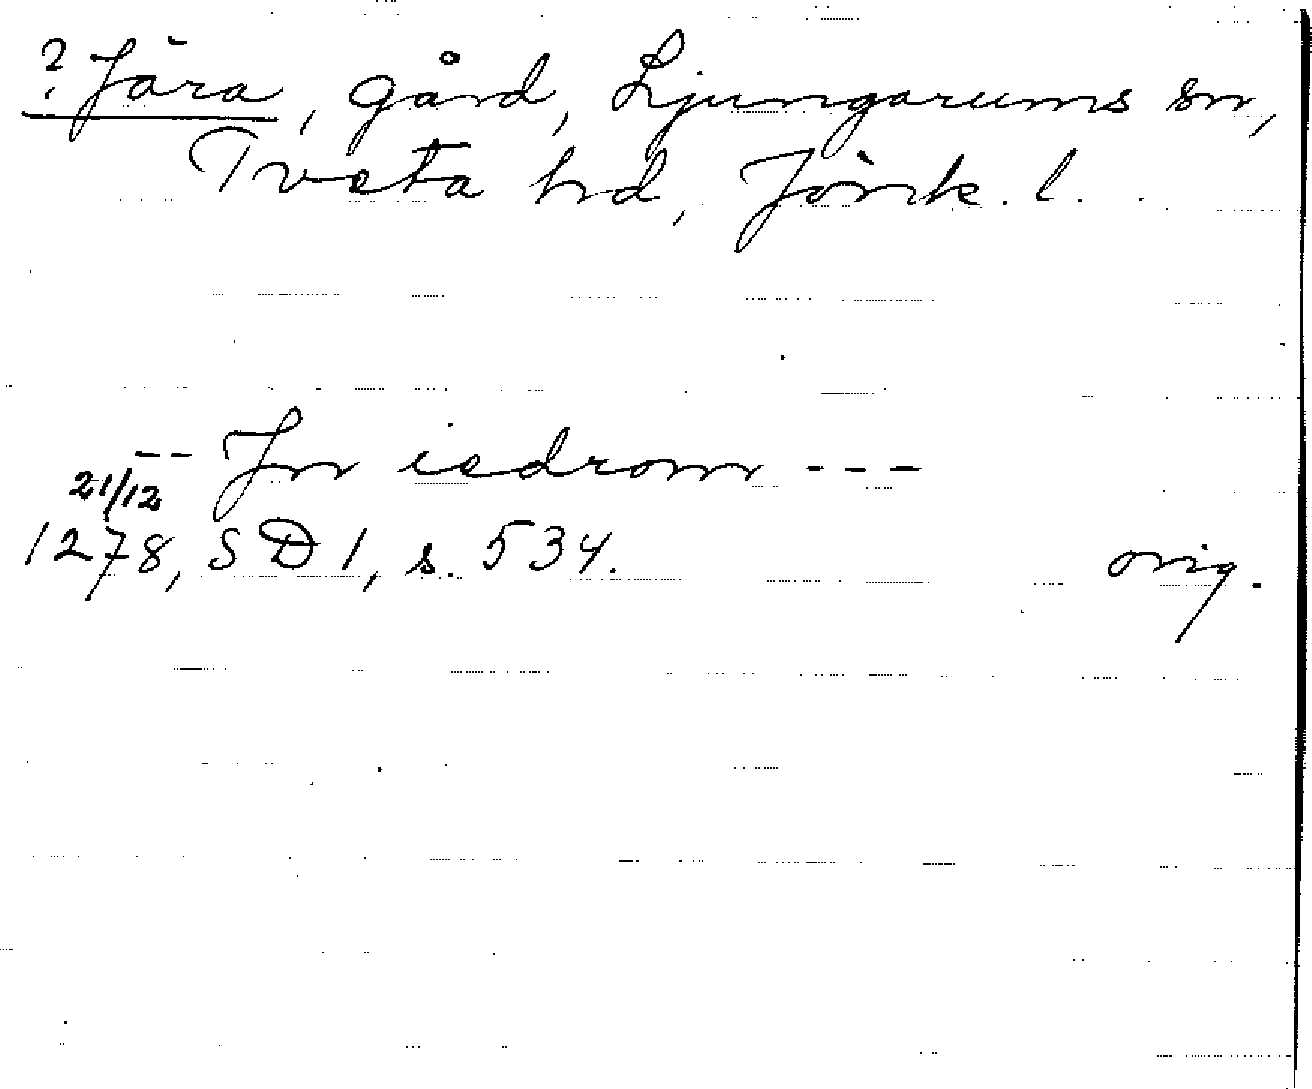 ? Jära, gård, Ljungarums sn,
Tveta hd, Jönk. l.
-- Jn iedrom ---
21/12
1278, SD 1, s. 534. orig.